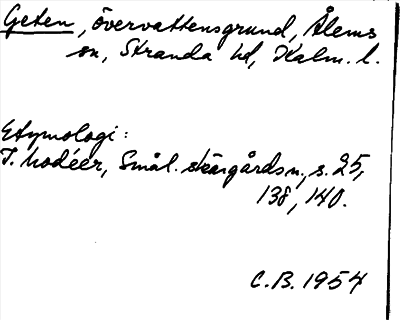 Geten, övervattensgrund, Ålems
sn, Stranda hd, Kalm. l.
Etymologi:
I. Modéer, Smål. skärgårdsn., s. 25,
138, 140.
C.B. 1954